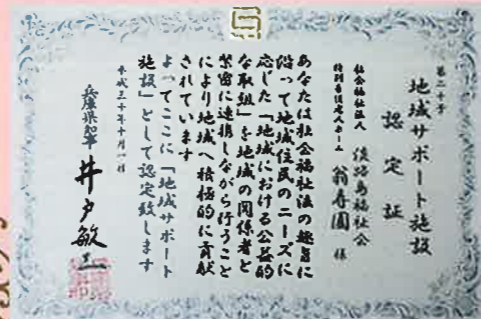 地域サポート施設
認定証
社会福祉法人 淡路島福祉会
特別養護老人ホーム 翁寿園 様
あなたは社会福祉法の趣旨に
沿って地域住民のニーズに
応じた「地域における公益的
な取組」を地域の関係者と
緊密に連携しながら行うこと
により地域へ積極的に貢献
されています
よってここに「地域サポート
施設」として認定致します
平成三十年十月一日
兵庫県知事 井戸敏三